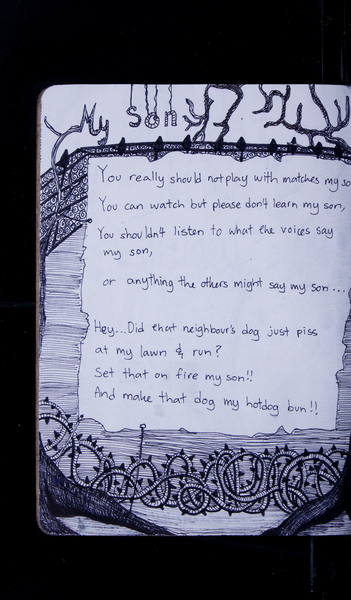 My Son
You really should not play with matches my so
You can watch but please don't learn my son,
You shouldn't listen to what the voices say
my son,
or anything the others might say my son...
Hey...Did that neighbour's dog just piss
at my lawn & run?
Set that on fire my son!!
And make that dog my hotdog bun!!